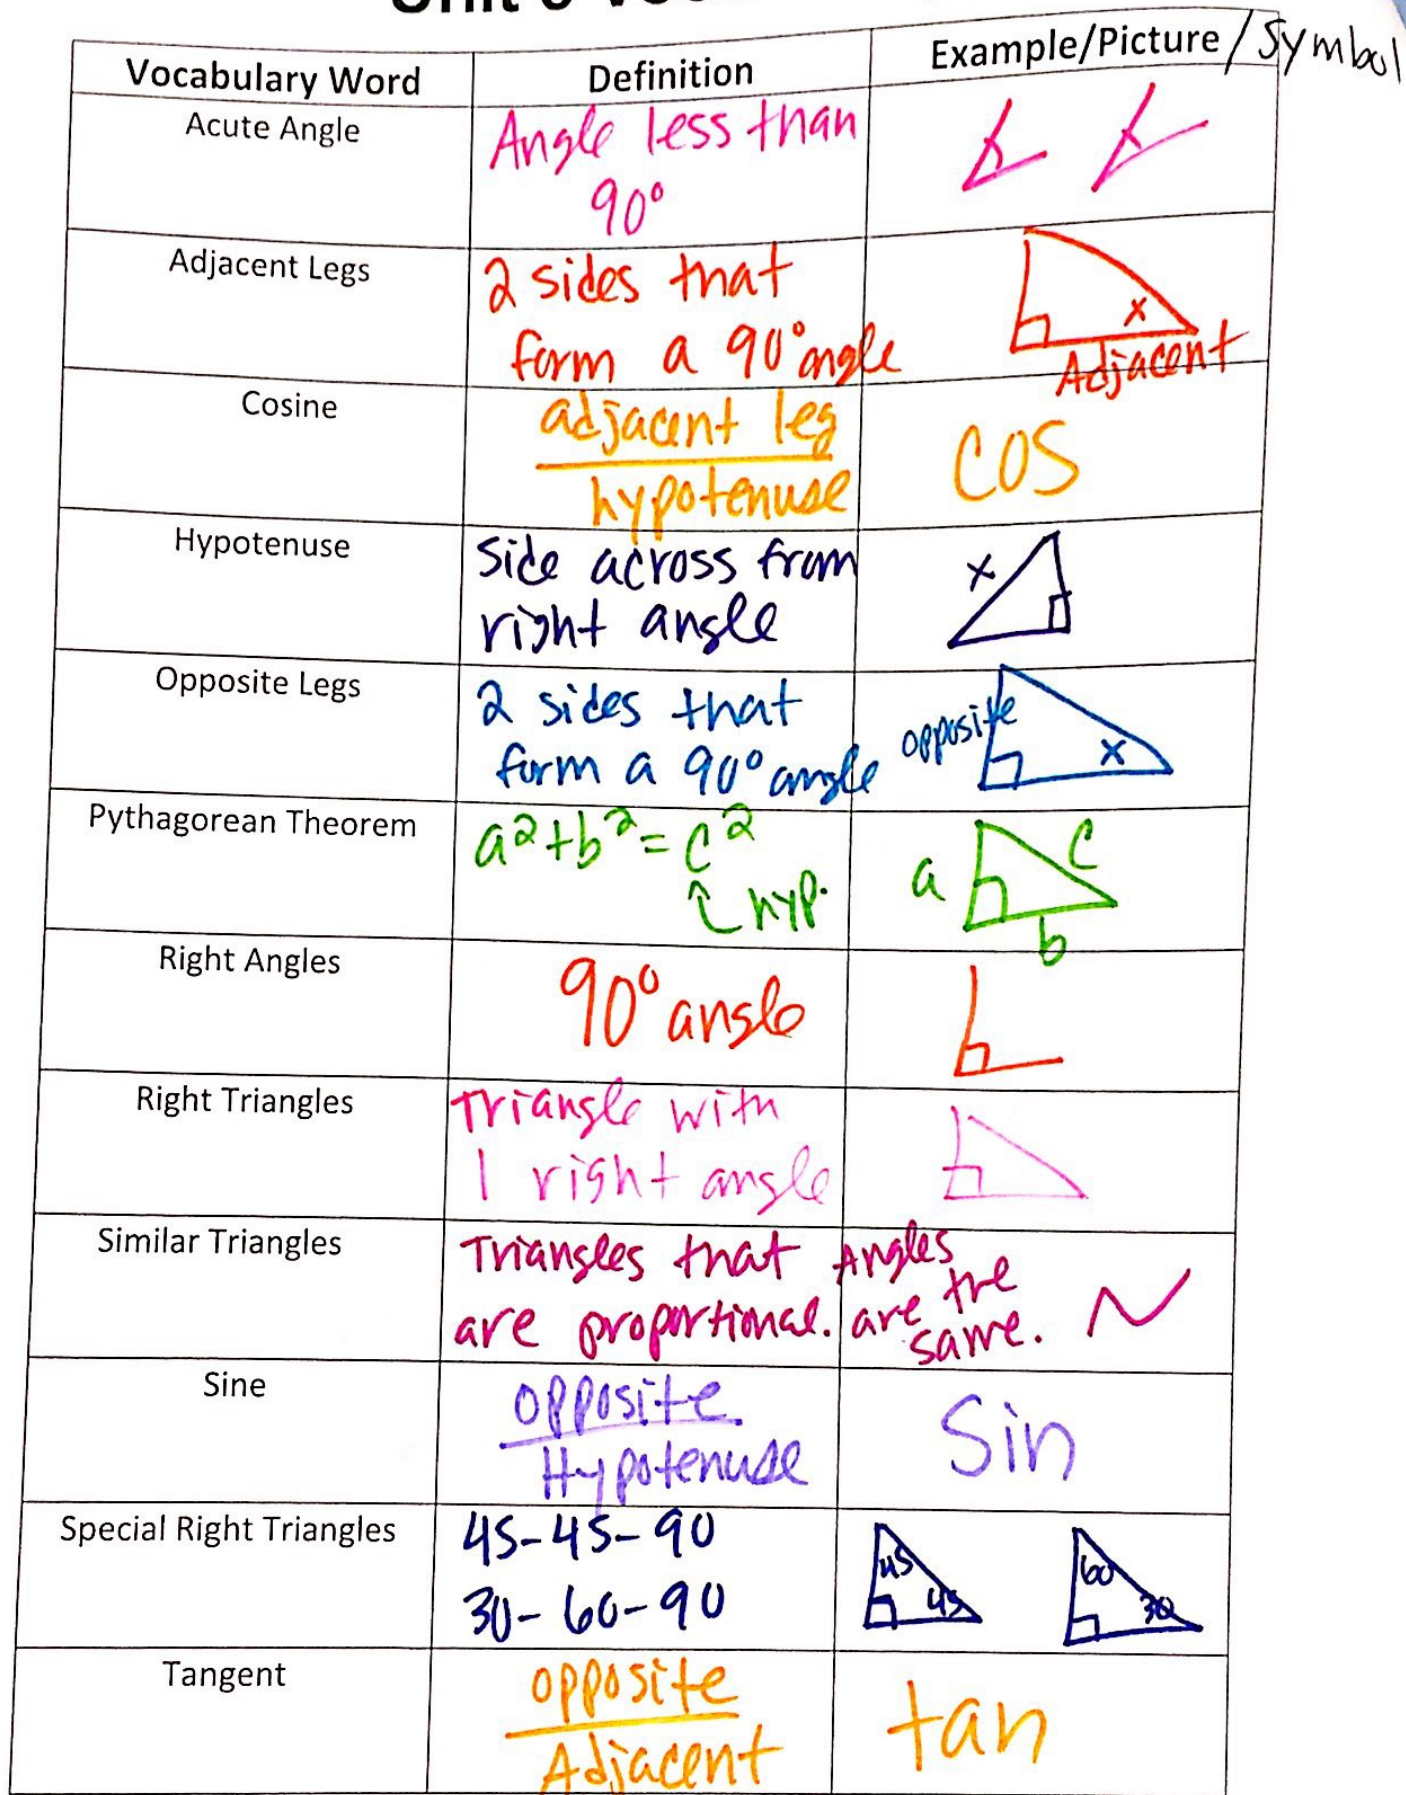 Vocabulary Word Definition Example/Picture / Symbol
Acute Angle
Angle less than
90°
Adjacent Legs
2 sides that
form a 90° angle
x
Adjacent
Cosine
adjacent leg
hypotenuse
cos
Hypotenuse
Side across from
right angle
x
Opposite Legs
2 sides that
form a 90° angle
opposite
x
Pythagorean Theorem
a²+b²=c²
hyp.
a
c
b
Right Angles
90° angle
Right Triangles
Triangle with
1 right angle
Similar Triangles
Triangles that
are proportional.
Angles
are the
same.
~
Sine
opposite
Hypotenuse
Sin
Special Right Triangles
45-45-90
30-60-90
45
45
60
30
Tangent
opposite
Adjacent
tan